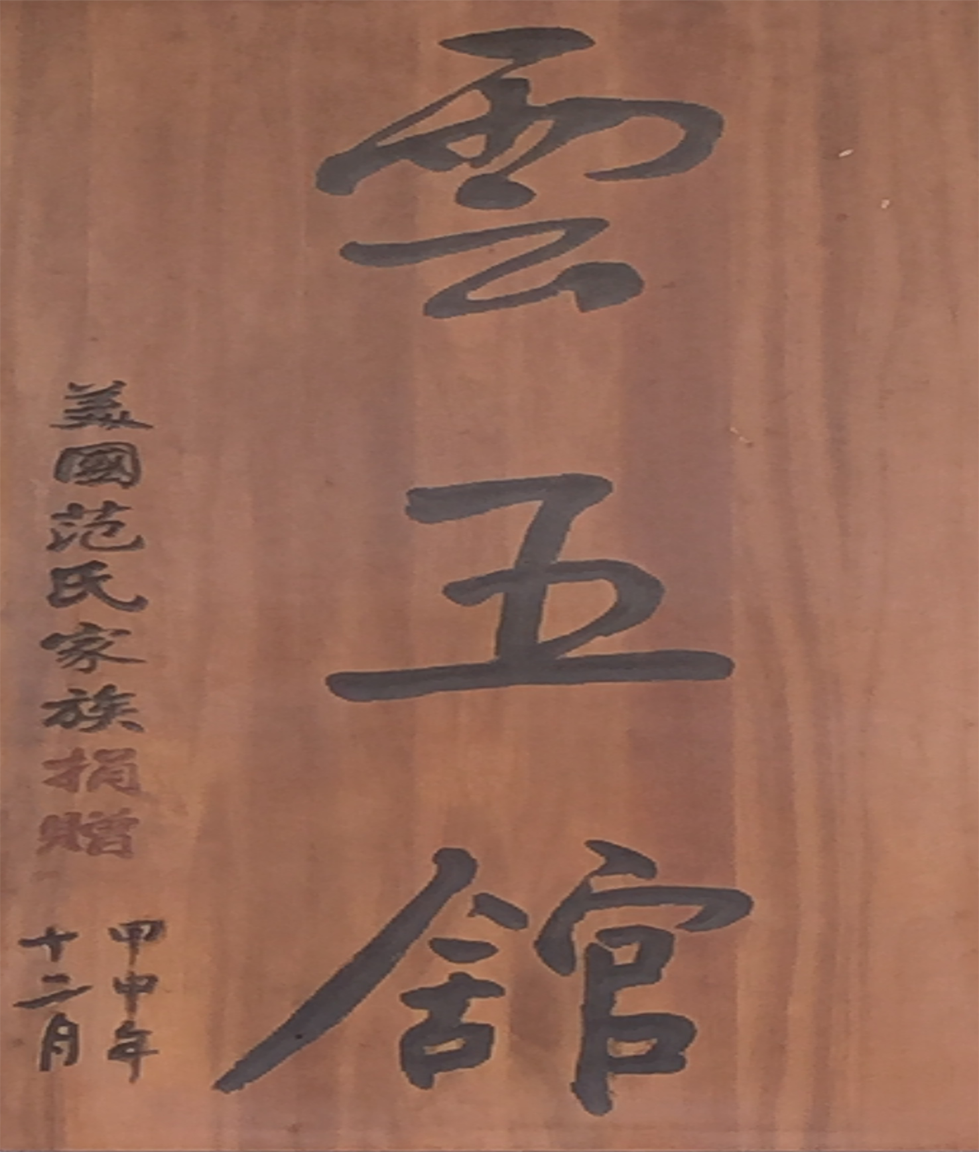 雲五舘
美國范氏家族捐贈
甲申年
十二月